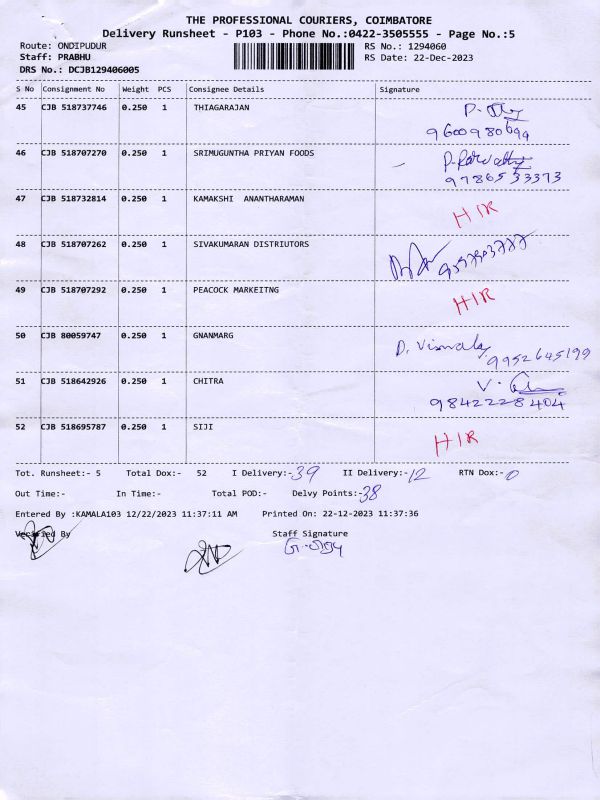 THE PROFESSIONAL COURIERS, COIMBATORE
Delivery Runsheet - P103 - Phone No.:0422-3505555 - Page No.:5
Route: ONDIPUDUR RS No.: 1294060
Staff: PRABHU RS Date: 22-Dec-2023
DRS No.: DCJB129406005
S No Consignment No Weight PCS Consignee Details Signature
45 CJB 518737746 0.250 1 THIAGARAJAN
9600980694
46 CJB 518707270 0.250 1 SRIMUGUNTHA PRIYAN FOODS P.Parvathy
9786533373
47 CJB 518732814 0.250 1 KAMAKSHI ANANTHARAMAN HIR
48 CJB 518707262 0.250 1 SIVAKUMARAN DISTRIUTORS
49 CJB 518707292 0.250 1 PEACOCK MARKEITNG HIR
50 CJB 80059747 0.250 1 GNANMARG
9952645199
51 CJB 518642926 0.250 1 CHITRA
9842228404
52 CJB 518695787 0.250 1 SIJI HIR
Tot. Runsheet:- 5 Total Dox:- 52 I Delivery:-39 II Delivery:-12 RTN Dox:-0
Out Time:- In Time:- Total POD:- Delvy Points:-38
Entered By :KAMALA103 12/22/2023 11:37:11 AM Printed On: 22-12-2023 11:37:36
By Staff Signature